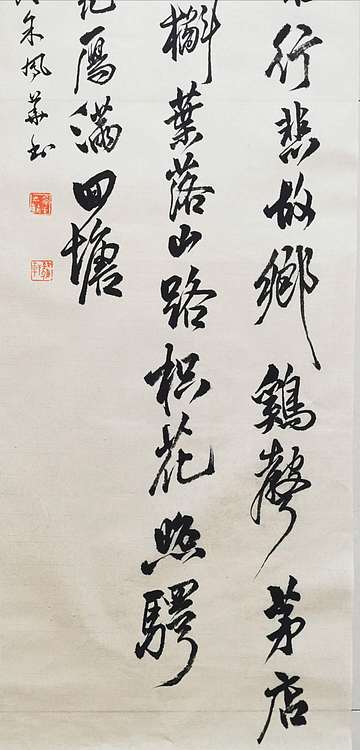 行悲故鄉鷄聲茅店
槲葉落山路枳花照驛
鴈滿回塘
朱風華書